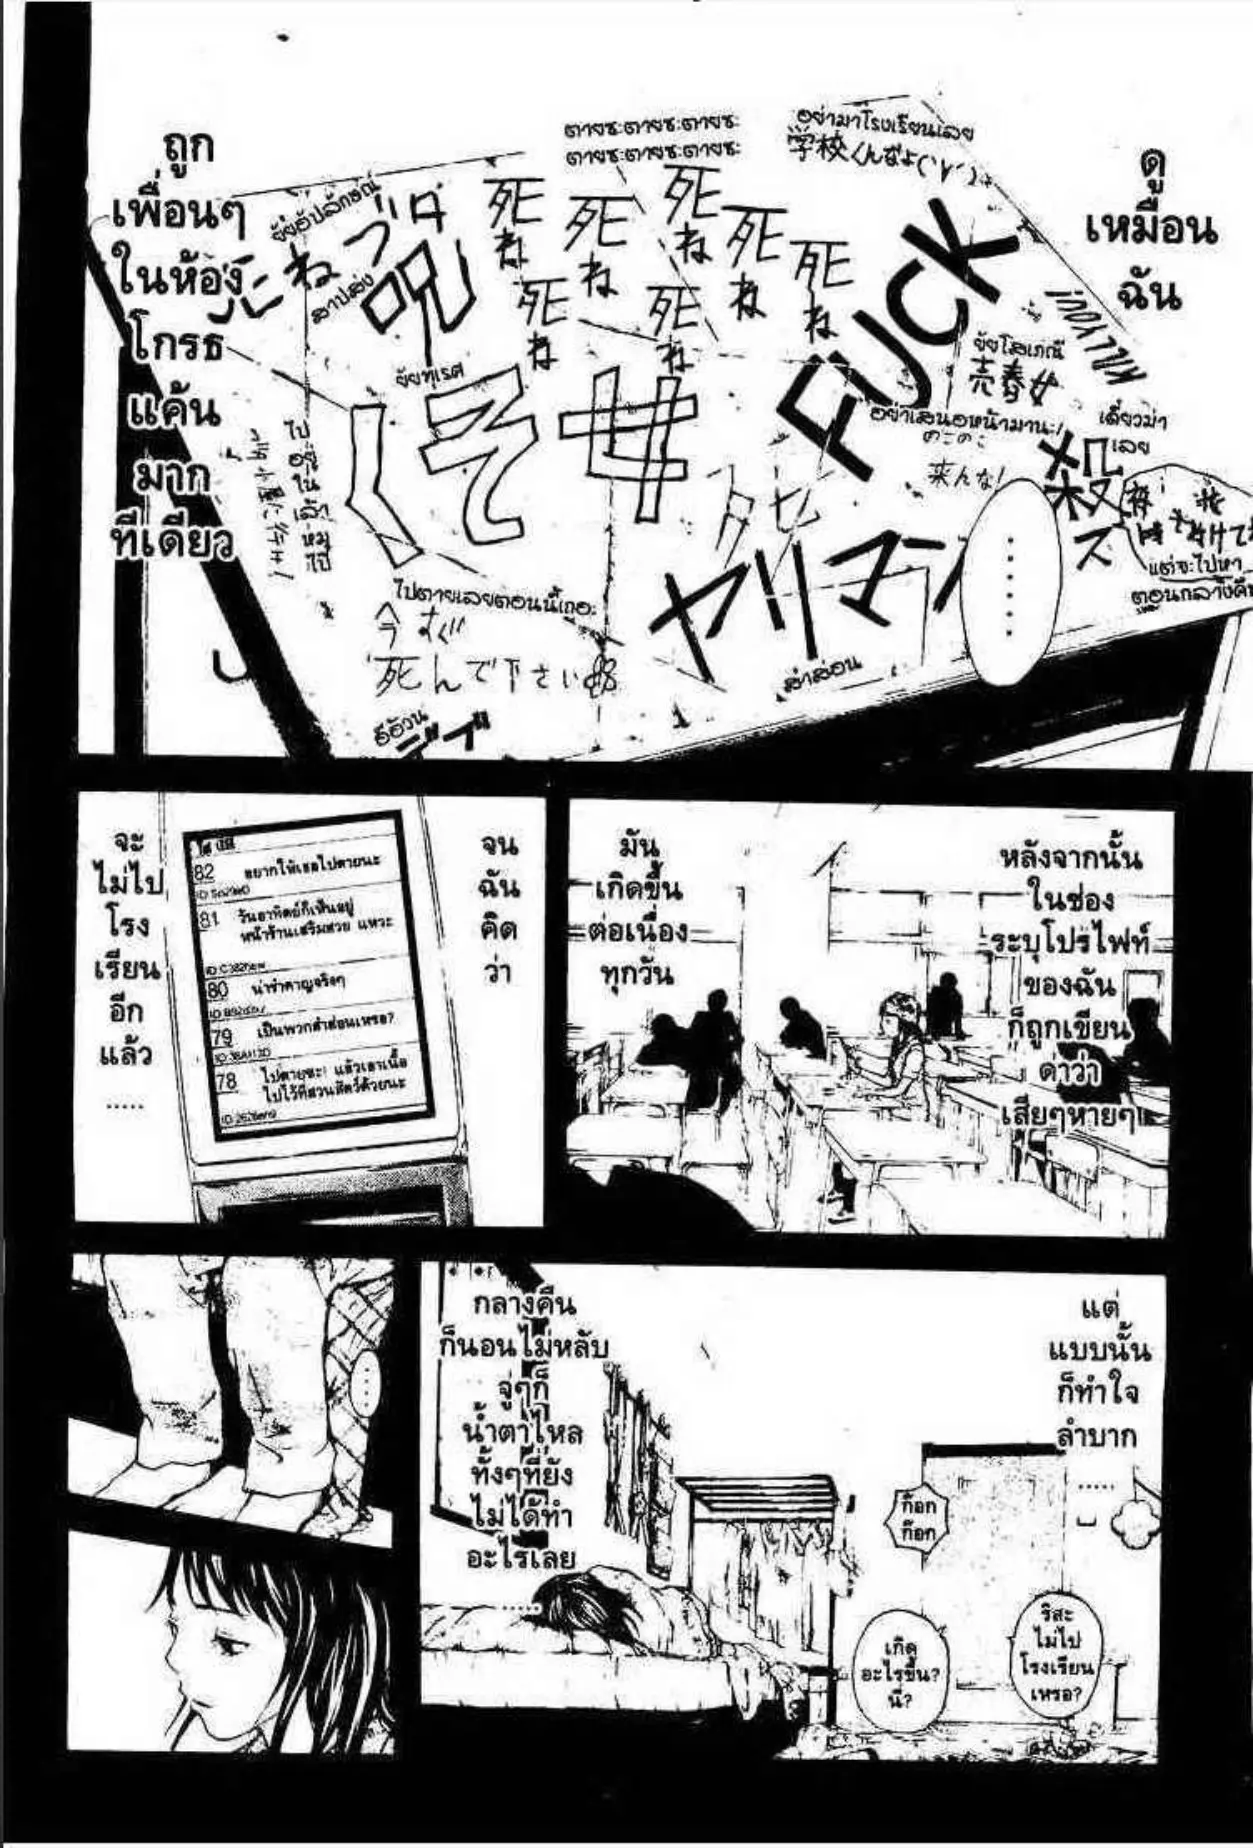 ดู
เหมือน
ฉัน
ถูก
เพื่อนๆ
ในห้อง
โกรธ
แค้น
มาก
ทีเดียว
ตายซะตายซะตายซะ
ตายซะตายซะตายซะ
อย่ามาโรงเรียนเลย
学校くんなよ(`∀´)
ยัยอัปลักษณ์
สาปส่ง
呪
死ね
死ね
死ね
死ね
死ね
死ね
死ね
FUCK
KILL YOU!
ยัยโสเภณี
売春女
อย่าเสนอหน้ามานะ!
来んな!
เดี๋ยวฆ่า
เลย
殺ス
แต่จะไปหา
ตอนกลางคืน
ยัยทุเรศ
ไป
อยู่
ใน
เล้า
หมู
ไป
ไปตายเลยตอนนี้เถอะ
今すぐ
死んで下さい
ヤリマン
สำส่อน
อีอ้วน
デブ
......
หลังจากนั้น
ในช่อง
ระบุโปรไฟท์
ของฉัน
ก็ถูกเขียน
ด่าว่า
เสียๆหายๆ
มัน
เกิดขึ้น
ต่อเนื่อง
ทุกวัน
จน
ฉัน
คิด
ว่า
82 อยากให้เธอไปตายนะ
81 วันอาทิตย์ก็เห็นอยู่
หน้าร้านเสริมสวย แหวะ
80 น่ารำคาญจริงๆ
79 เป็นพวกสำส่อนเหรอ?
78 ไปตายซะ! แล้วเอาเนื้อ
ไปไว้ที่สวนสัตว์ด้วยนะ
จะ
ไม่ไป
โรง
เรียน
อีก
แล้ว
.....
แต่
แบบนั้น
ก็ทำใจ
ลำบาก
.....
ก๊อก
ก๊อก
ริสะ
ไม่ไป
โรงเรียน
เหรอ?
เกิด
อะไรขึ้น?
นี่?
กลางคืน
ก็นอนไม่หลับ
จู่ๆก็
น้ำตาไหล
ทั้งๆที่ยัง
ไม่ได้ทำ
อะไรเลย
.....
....